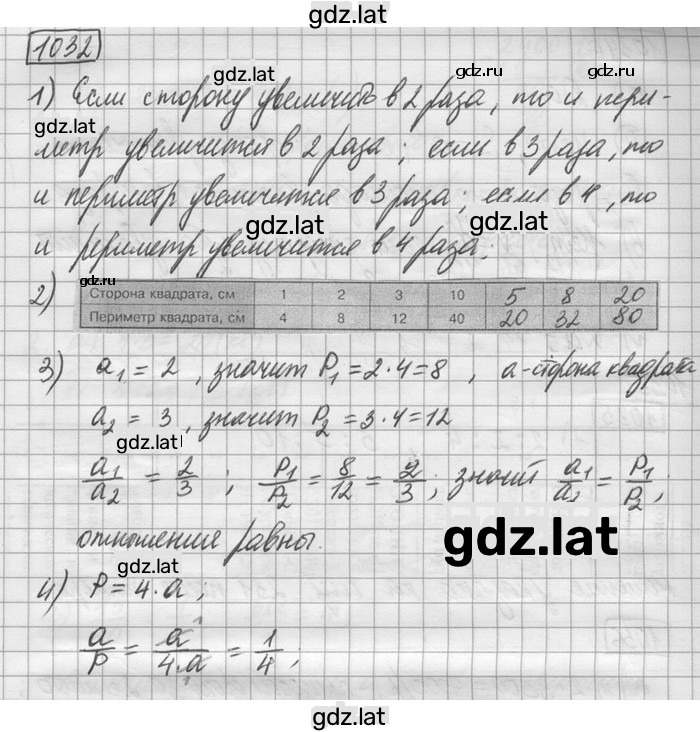 gdz.lat
1032
gdz.lat
gdz.lat
1) Если сторону увеличить в 2 раза, то и пери-
gdz.lat
метр увеличится в 2 раза; если в 3 раза, то
и периметр увеличится в 3 раза; если в 4, то
gdz.lat
и периметр увеличится в 4 раза.
gdz.ru
2) Сторона квадрата, см 1 2 3 10 5 8 20
Периметр квадрата, см 4 8 12 40 20 32 80
3) a₁ = 2, значит P₁ = 2·4 = 8, a-сторона квадрата
a₂ = 3, значит P₂ = 3·4 = 12
gdz.lat
a₁/a₂ = 2/3; P₁/P₂ = 8/12 = 2/3; значит a₁/a₂ = P₁/P₂;
gdz.lat
отношение равны.
gdz.lat
4) P = 4·a;
a/P = a/4·a = 1/4;
gdz.lat